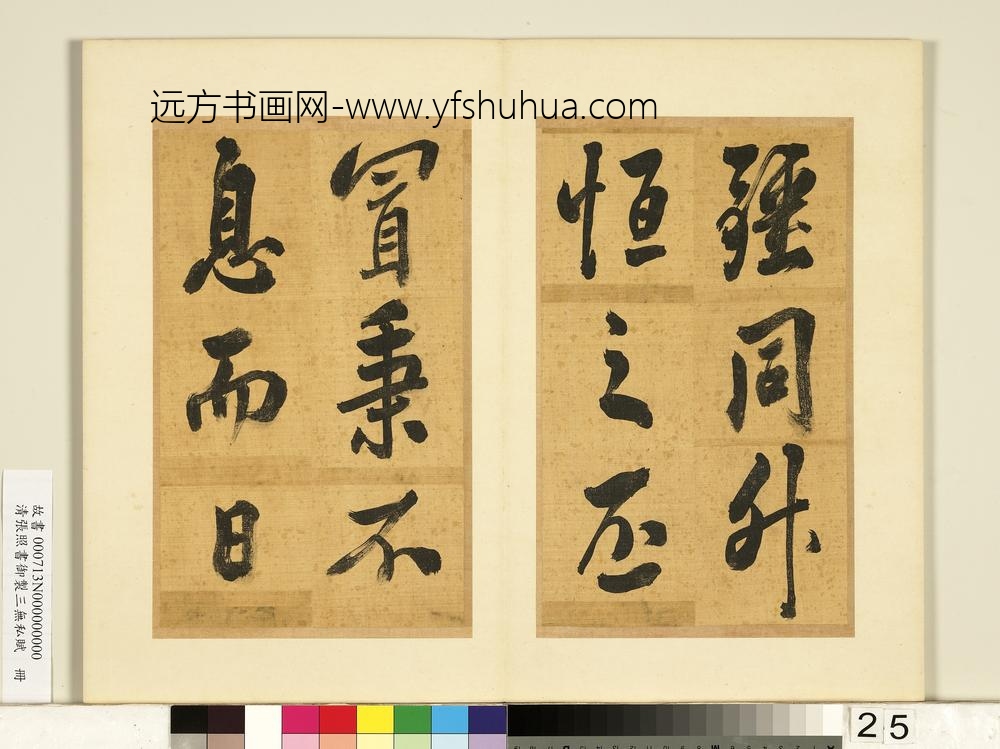 远方书画网-www.yfshuhua.com
疆同升
恒之丕
冒秉不
息而日
故書 000713N000000000
清張照書御製三無私賦 冊
25